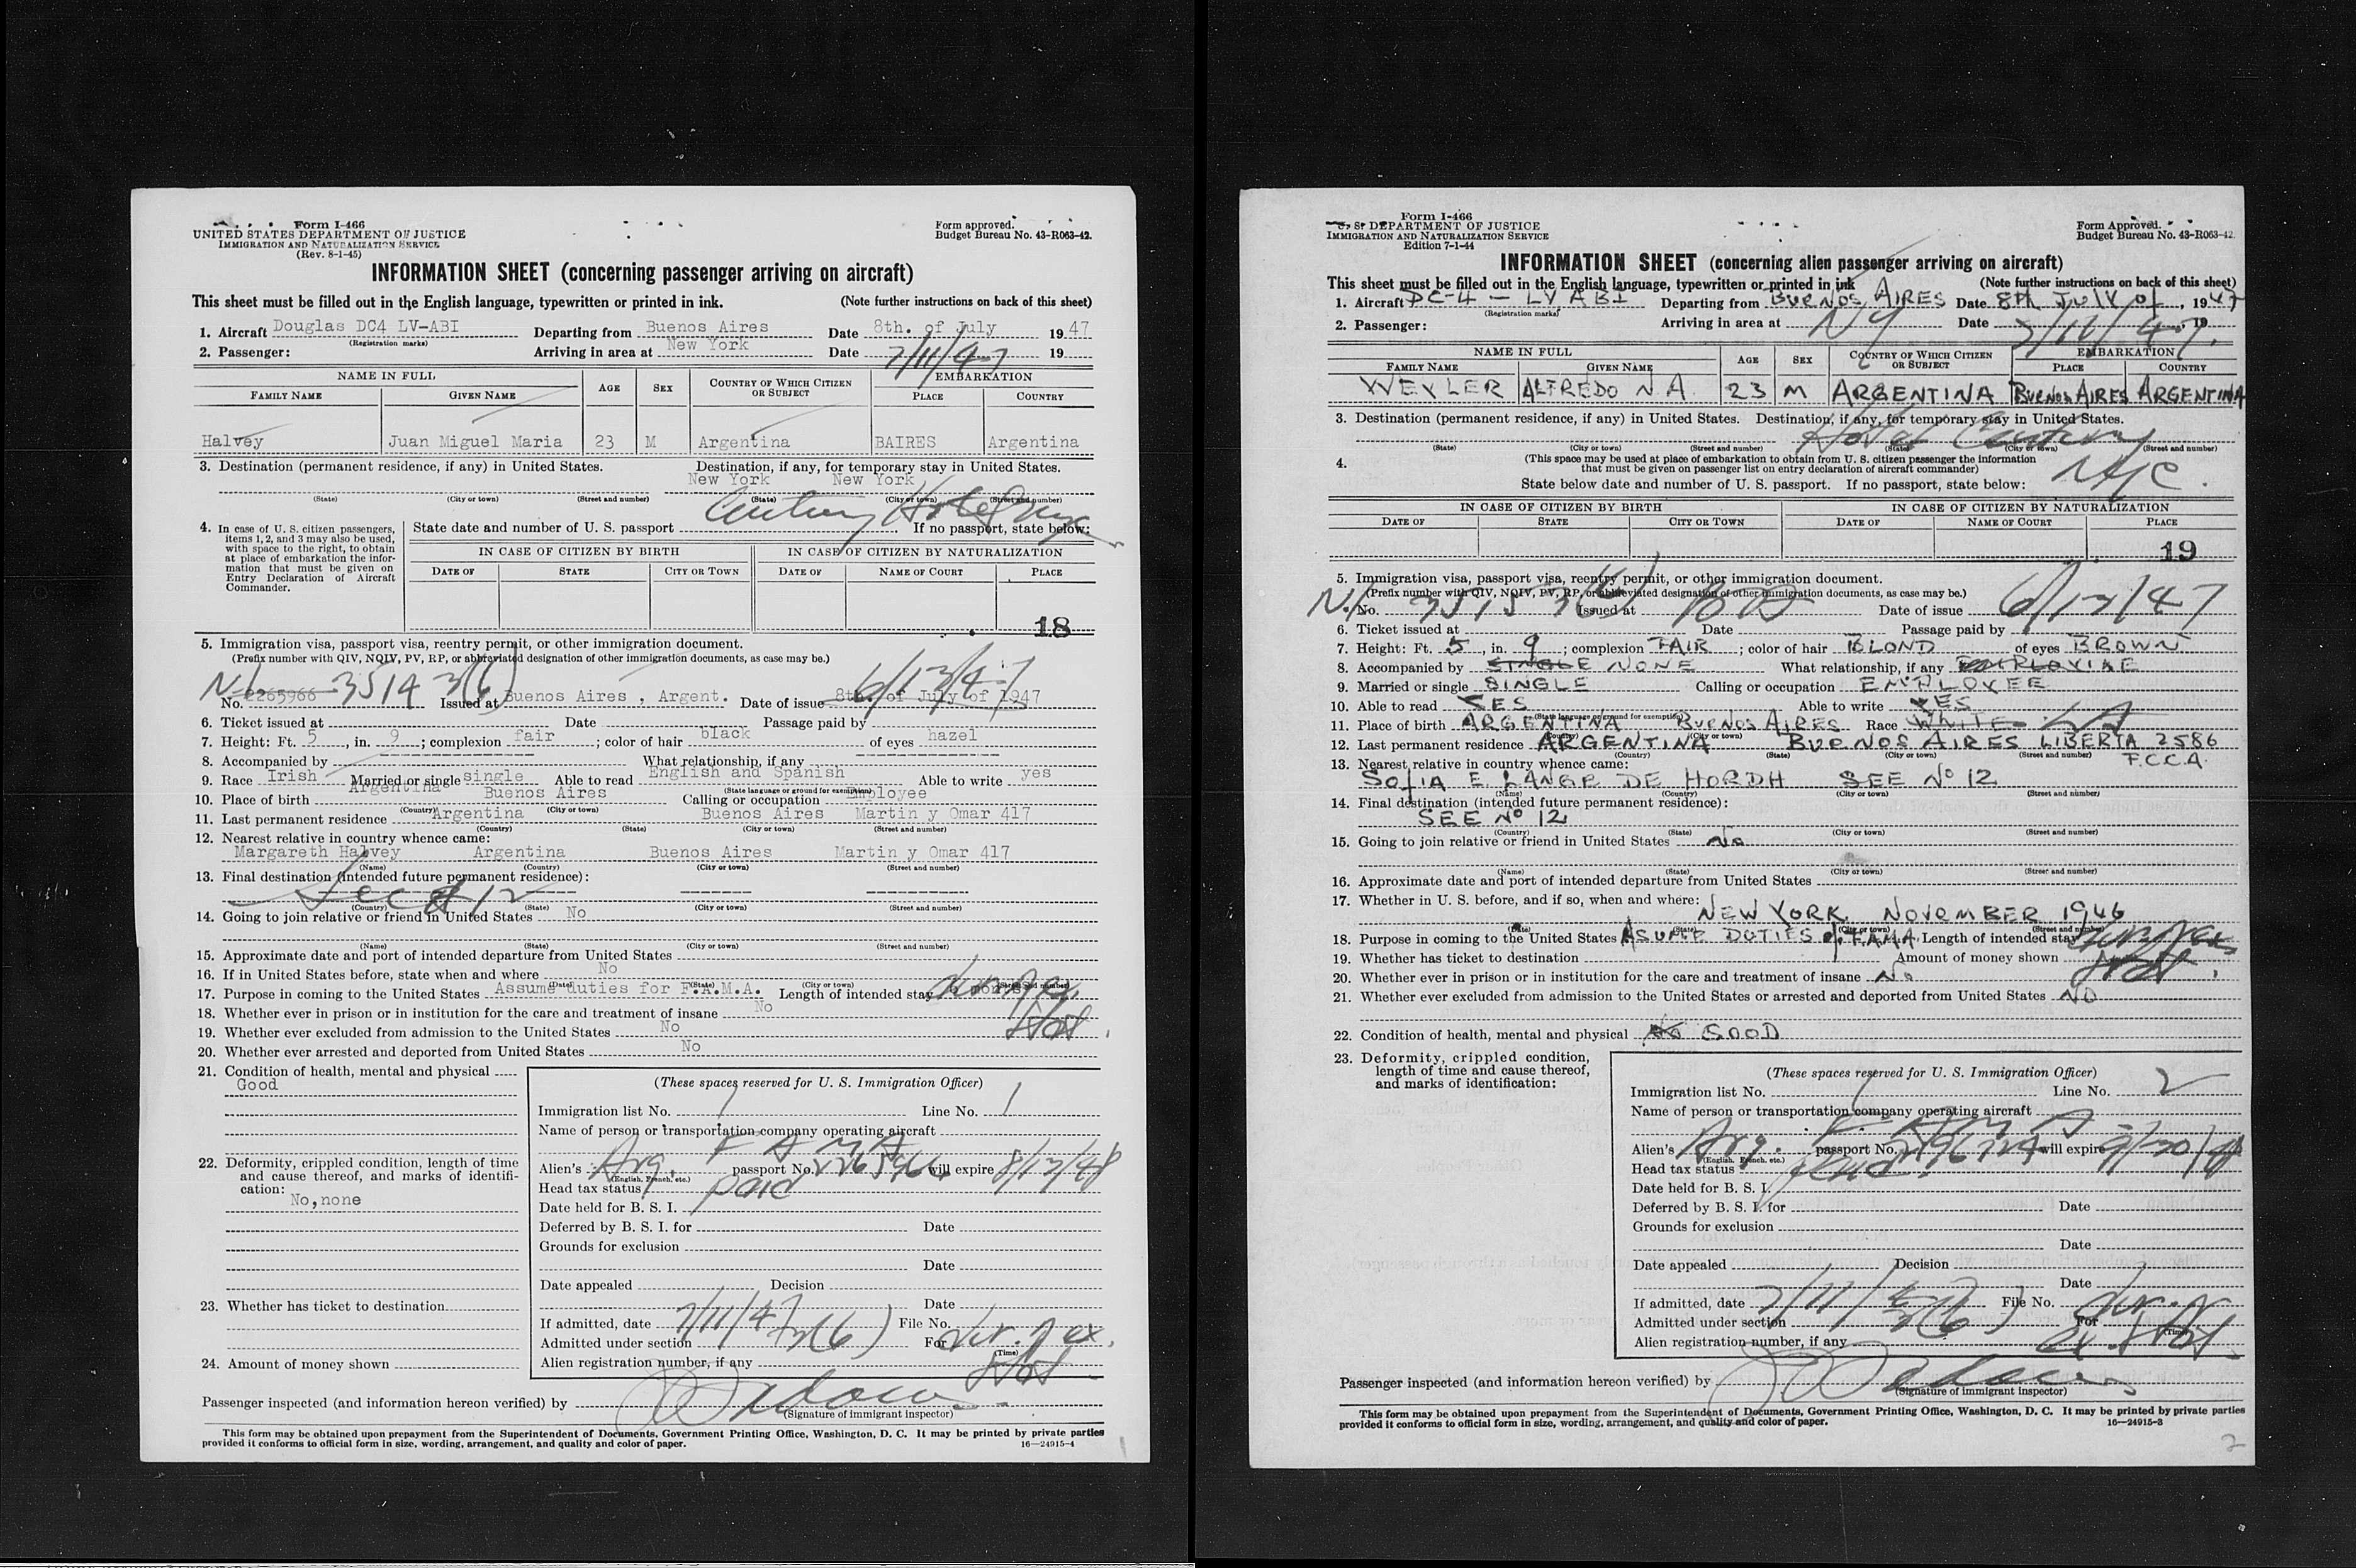 Form I-466
UNITED STATES DEPARTMENT OF JUSTICE
IMMIGRATION AND NATURALIZATION SERVICE
(Rev. 8-1-45)
Form approved.
Budget Bureau No. 43-R063-42.
INFORMATION SHEET (concerning passenger arriving on aircraft)
This sheet must be filled out in the English language, typewritten or printed in ink. (Note further instructions on back of this sheet)
1. Aircraft Douglas DC4 LV-ABI Departing from Buenos Aires Date 8th. of July 1947
(Registration marks)
2. Passenger: Arriving in area at New York Date 7/11/47 19
NAME IN FULL AGE SEX COUNTRY OF WHICH CITIZEN OR SUBJECT EMBARKATION
FAMILY NAME GIVEN NAME PLACE COUNTRY
Halvey Juan Miguel Maria 23 M Argentina BAIRES Argentina
3. Destination (permanent residence, if any) in United States. Destination, if any, for temporary stay in United States.
New York New York
(State) (City or town) (Street and number) (State) (City or town) (Street and number)
Century Hotel
4. In case of U. S. citizen passengers, items 1, 2, and 3 may also be used, with space to the right, to obtain at place of embarkation the information that must be given on Entry Declaration of Aircraft Commander.
State date and number of U. S. passport If no passport, state below:
IN CASE OF CITIZEN BY BIRTH IN CASE OF CITIZEN BY NATURALIZATION
DATE OF STATE CITY OR TOWN DATE OF NAME OF COURT PLACE
18
5. Immigration visa, passport visa, reentry permit, or other immigration document.
(Prefix number with QIV, NQIV, PV, RP, or abbreviated designation of other immigration documents, as case may be.)
NI 3514 3(6) 6/13/47
No. 2265966 Issued at Buenos Aires , Argent. Date of issue 8th. of July of 1947
6. Ticket issued at Date Passage paid by
7. Height: Ft. 5, in. 9; complexion fair; color of hair black of eyes hazel
8. Accompanied by What relationship, if any
9. Race Irish Married or single single Able to read English and Spanish Able to write yes
(State language or ground for exemption)
10. Place of birth Argentina Buenos Aires Calling or occupation Employee
(Country) (City or town)
11. Last permanent residence Argentina Buenos Aires Martin y Omar 417
(Country) (State) (City or town) (Street and number)
12. Nearest relative in country whence came:
Margareth Halvey Argentina Buenos Aires Martin y Omar 417
(Name) (Country) (City or town) (Street and number)
13. Final destination (intended future permanent residence):
See # 12
(Country) (State) (City or town) (Street and number)
14. Going to join relative or friend in United States No
(Name) (State) (City or town) (Street and number)
15. Approximate date and port of intended departure from United States
16. If in United States before, state when and where No
(Date) (State) (City or town) (Street and number)
17. Purpose in coming to the United States Assume duties for F.A.M.A. Length of intended stay
18. Whether ever in prison or in institution for the care and treatment of insane No
19. Whether ever excluded from admission to the United States No
20. Whether ever arrested and deported from United States No
21. Condition of health, mental and physical
Good
22. Deformity, crippled condition, length of time and cause thereof, and marks of identification:
No,none
23. Whether has ticket to destination
24. Amount of money shown
(These spaces reserved for U. S. Immigration Officer)
Immigration list No. 1 Line No. 1
Name of person or transportation company operating aircraft
F A M A
Alien's Arg. passport No. 2265966 will expire 8/13/48
(English, French, etc.)
Head tax status paid
Date held for B. S. I.
Deferred by B. S. I. for Date
Grounds for exclusion
Date
Date appealed Decision
Date
If admitted, date 7/11/47 File No.
Admitted under section 3(6) For
(Time)
Alien registration number, if any
Passenger inspected (and information hereon verified) by
(Signature of immigrant inspector)
This form may be obtained upon prepayment from the Superintendent of Documents, Government Printing Office, Washington, D. C. It may be printed by private parties
provided it conforms to official form in size, wording, arrangement, and quality and color of paper. 16—24915-4
1
Form I-466
DEPARTMENT OF JUSTICE
IMMIGRATION AND NATURALIZATION SERVICE
Edition 7-1-44
Form Approved.
Budget Bureau No. 43-R063-42.
INFORMATION SHEET (concerning alien passenger arriving on aircraft)
This sheet must be filled out in the English language, typewritten or printed in ink (Note further instructions on back of this sheet)
1. Aircraft DC-4 — LV ABI Departing from BUENOS AIRES Date 8th JULY of, 1947
(Registration marks)
2. Passenger: Arriving in area at NY Date 7/11/47, 19
NAME IN FULL AGE SEX COUNTRY OF WHICH CITIZEN OR SUBJECT EMBARKATION
FAMILY NAME GIVEN NAME PLACE COUNTRY
WEXLER ALFREDO N A. 23 M ARGENTINA BUENOS AIRES ARGENTINA
3. Destination (permanent residence, if any) in United States. Destination, if any, for temporary stay in United States.
Hotel Century
(State) (City or town) (Street and number) (State) (City or town) (Street and number)
4. (This space may be used at place of embarkation to obtain from U. S. citizen passenger the information
that must be given on passenger list on entry declaration of aircraft commander)
NYC.
State below date and number of U. S. passport. If no passport, state below:
IN CASE OF CITIZEN BY BIRTH IN CASE OF CITIZEN BY NATURALIZATION
DATE OF STATE CITY OR TOWN DATE OF NAME OF COURT PLACE
19
5. Immigration visa, passport visa, reentry permit, or other immigration document.
(Prefix number with QIV, NQIV, PV, RP, or abbreviated designation of other immigration documents, as case may be.)
NI No. 3515 3(6) Issued at BA Date of issue 6/13/47
6. Ticket issued at Date Passage paid by
7. Height: Ft. 5, in. 9; complexion FAIR; color of hair BLOND of eyes BROWN
8. Accompanied by SINGLE NONE What relationship, if any
9. Married or single SINGLE Calling or occupation EMPLOYEE
10. Able to read YES Able to write YES
(State language or ground for exemption)
11. Place of birth ARGENTINA BUENOS AIRES Race WHITE
(Country) (City or town)
12. Last permanent residence ARGENTINA BUENOS AIRES LIBERTA 2586
(Country) (State) (City or town) (Street and number)
F.C.C.A.
13. Nearest relative in country whence came:
SOfIA E LANGE DE HORDH SEE Nº 12
(Name) (Country) (City or town) (Street and number)
14. Final destination (intended future permanent residence):
SEE Nº 12
(Country) (State) (City or town) (Street and number)
15. Going to join relative or friend in United States No
(Name) (State) (City or town) (Street and number)
16. Approximate date and port of intended departure from United States
17. Whether in U. S. before, and if so, when and where:
NEW YORK NOVEMBER 1946
(Date) (State) (City or town) (Street and number)
18. Purpose in coming to the United States ASUME DUTIES of FAMA. Length of intended stay
19. Whether has ticket to destination Amount of money shown
20. Whether ever in prison or in institution for the care and treatment of insane No
21. Whether ever excluded from admission to the United States or arrested and deported from United States NO
22. Condition of health, mental and physical GOOD
23. Deformity, crippled condition, length of time and cause thereof, and marks of identification:
(These spaces reserved for U. S. Immigration Officer)
Immigration list No. 1 Line No. 2
Name of person or transportation company operating aircraft
F A M A
Alien's Arg. passport No. will expire
(English, French, etc.)
Head tax status paid
Date held for B. S. I.
Deferred by B. S. I. for Date
Grounds for exclusion
Date
Date appealed Decision
Date
If admitted, date 7/11/47 File No.
Admitted under section 3(6) For
(Time)
Alien registration number, if any
Passenger inspected (and information hereon verified) by
(Signature of immigrant inspector)
This form may be obtained upon prepayment from the Superintendent of Documents, Government Printing Office, Washington, D. C. It may be printed by private parties
provided it conforms to official form in size, wording, arrangement, and quality and color of paper. 16—24915-3
2